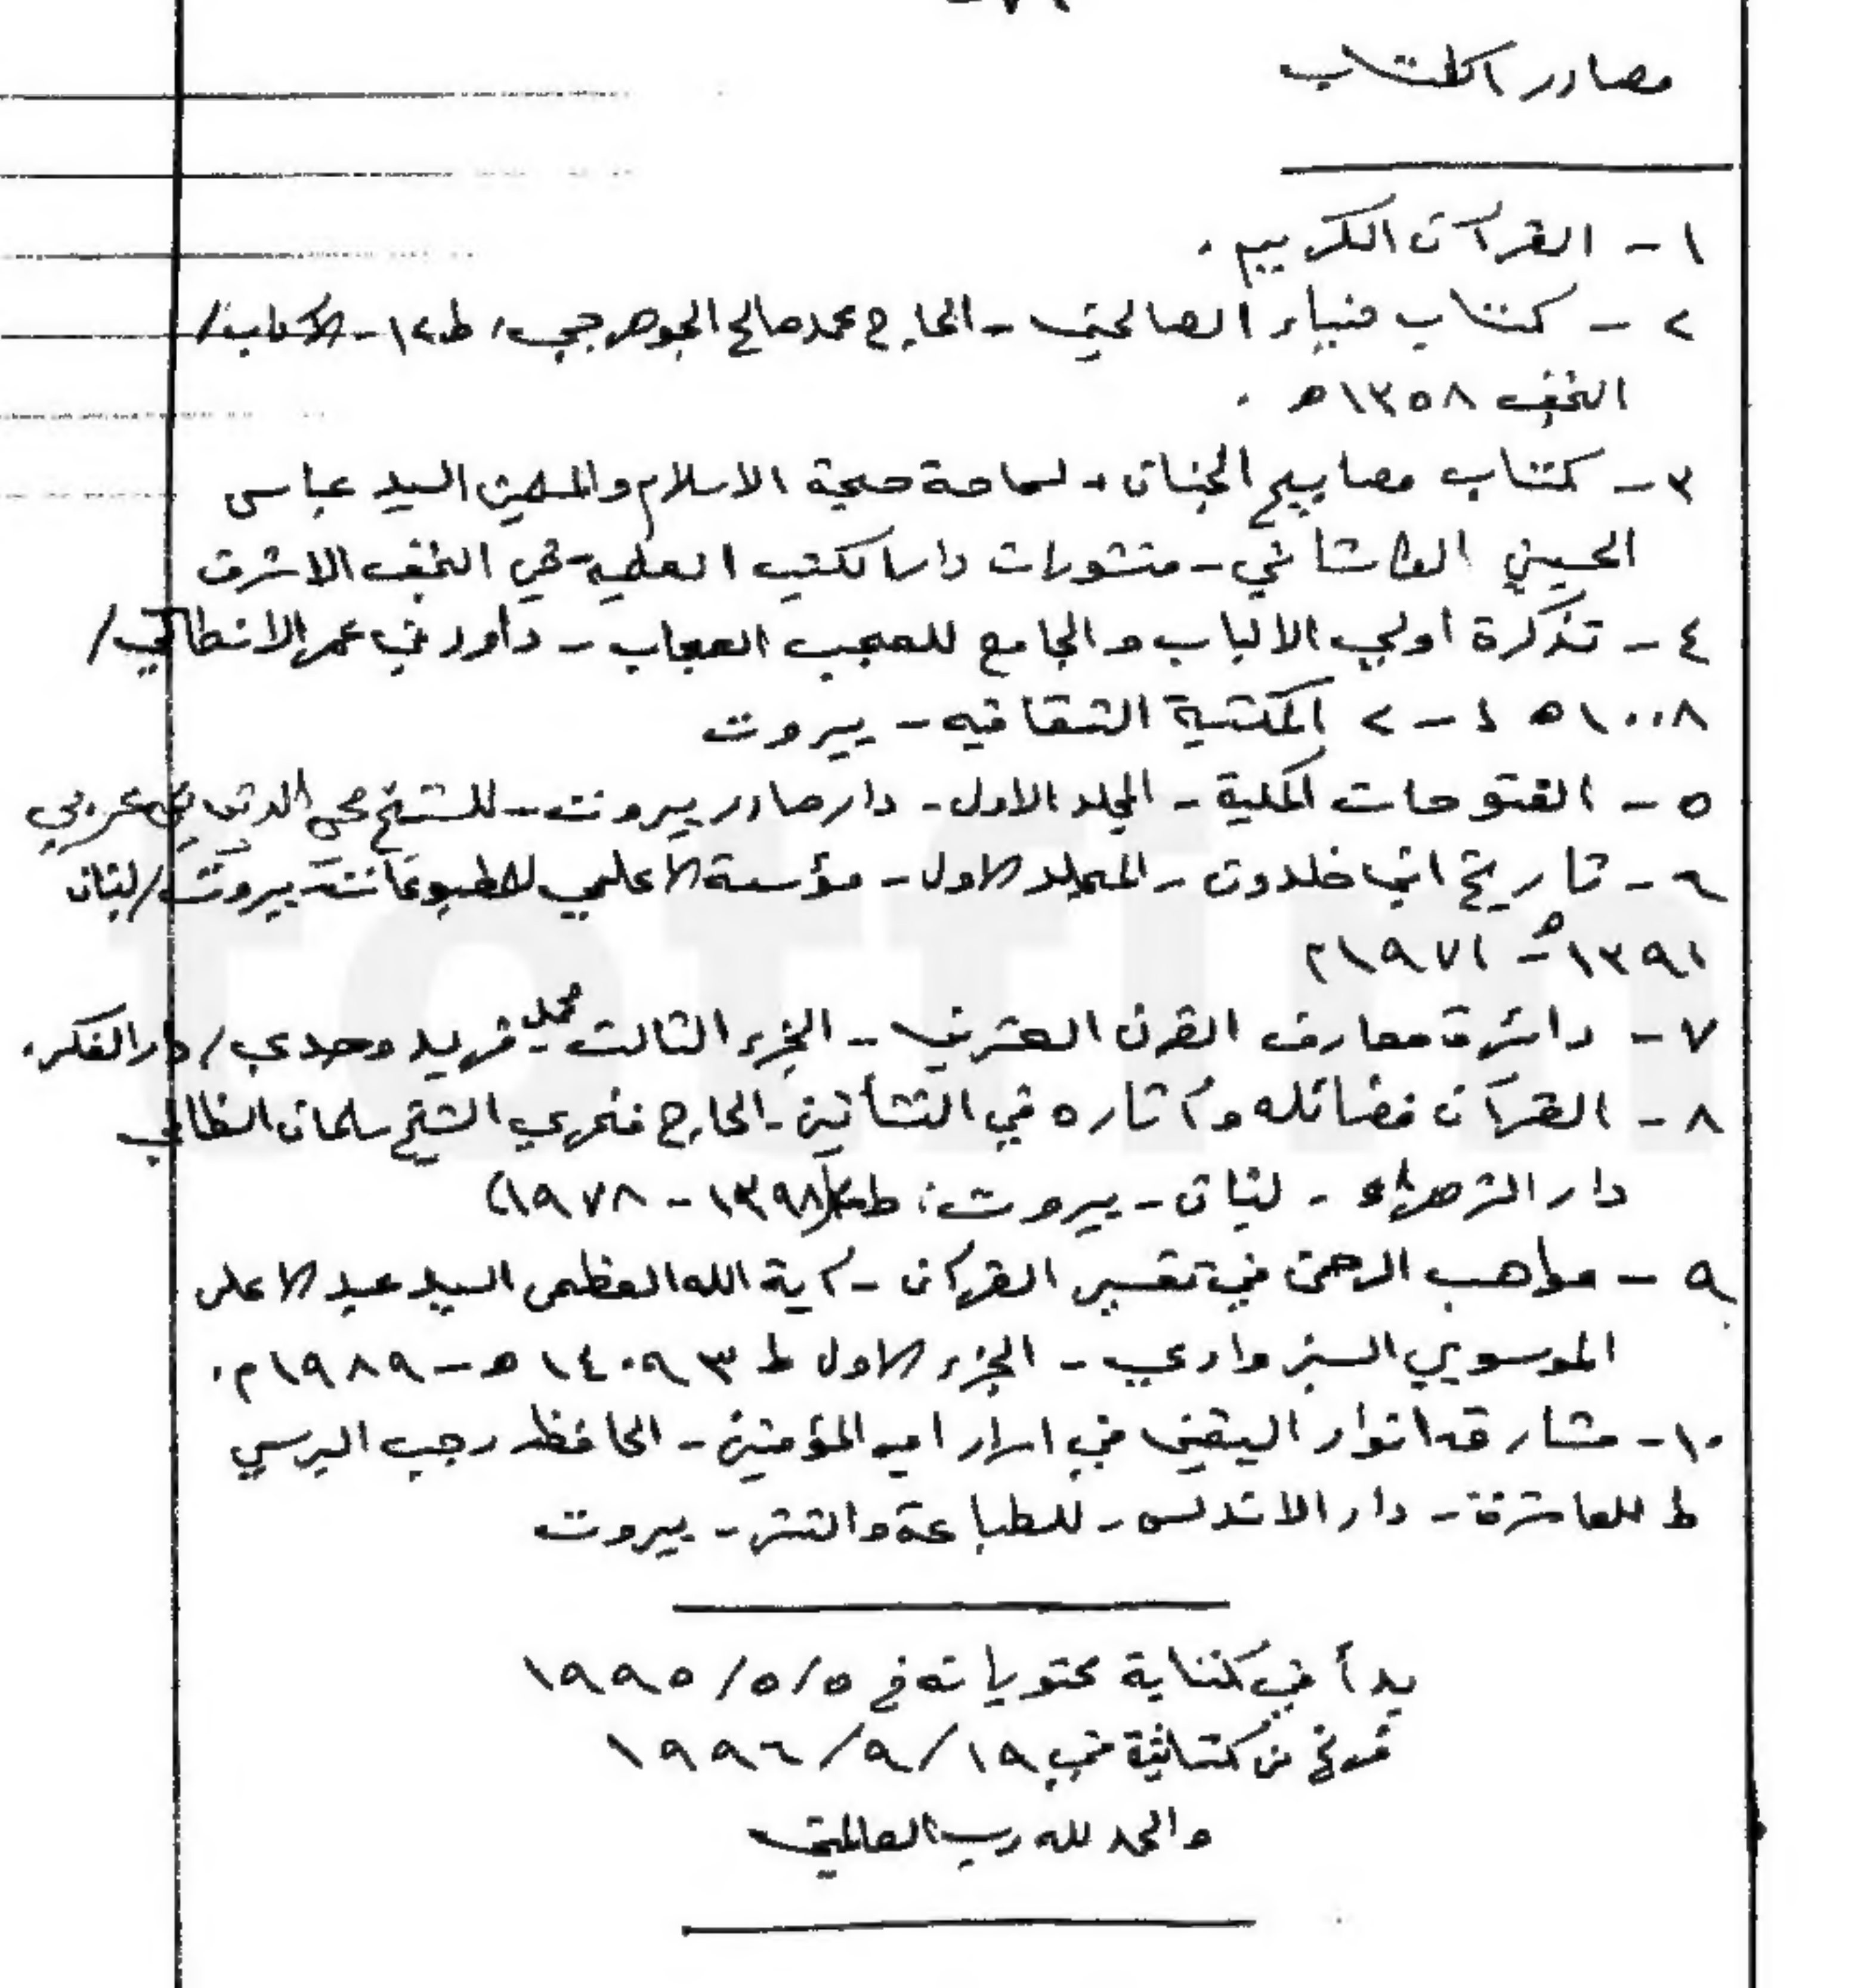 مصادر الكتاب
١ - القرآن الكريم .
٢ - كتاب ضياء الصالحين - الحاج محمد صالح الجوهرجي، ط ١٢ - الآداب /
النجف ١٣٥٨ ه .
٣ - كتاب مصابيح الجنان - لسماحة حجة الاسلام والمسلمين السيد عباس
الحسيني الكاشاني - منشورات دار الكتب العلمية في النجف الاشرف
٤ - تذكرة أولي الالباب والجامع للعجب العجاب - داود بن عمر الانطاكي /
١٠٠٨ ه ١ - ٢ المكتبة الثقافيه - بيروت
٥ - الفتوحات المكية - المجلد الاول - دار صادر بيروت - للشيخ محي الدين بن عربي
٦ - تاريخ ابن خلدون - المجلد الاول - مؤسسة الاعلمي للمطبوعات - بيروت / لبنان
١٣٩١ ه - ١٩٧١ م
٧ - دائرة معارف القرن العشرين - الجزء الثالث محمد فريد وجدي / دار الفكر .
٨ - القرآن فضائله وآثاره في النشأتين - الحاج فخري الشيخ سلمان الظالمي
دار الزهراء - لبنان - بيروت ، ط (١٣٩٨ - ١٩٧٨)
٩ - مواهب الرحمن في تفسير القرآن - آية الله العظمى السيد عبد الاعلى
الموسوي السبزواري - الجزء الاول ط ٣ ١٤٠٩ ه - ١٩٨٩ م .
١٠ - مشارق انوار اليقين في اسرار امير المؤمنين - الحافظ رجب البرسي
ط العاشرة - دار الاندلس - للطباعة والنشر - بيروت
بدأ في كتابة محتوياته في ٥ / ٥ / ١٩٩٥
فرغ من كتابته في ١٩ / ٩ / ١٩٩٦
والحمد لله رب العالمين